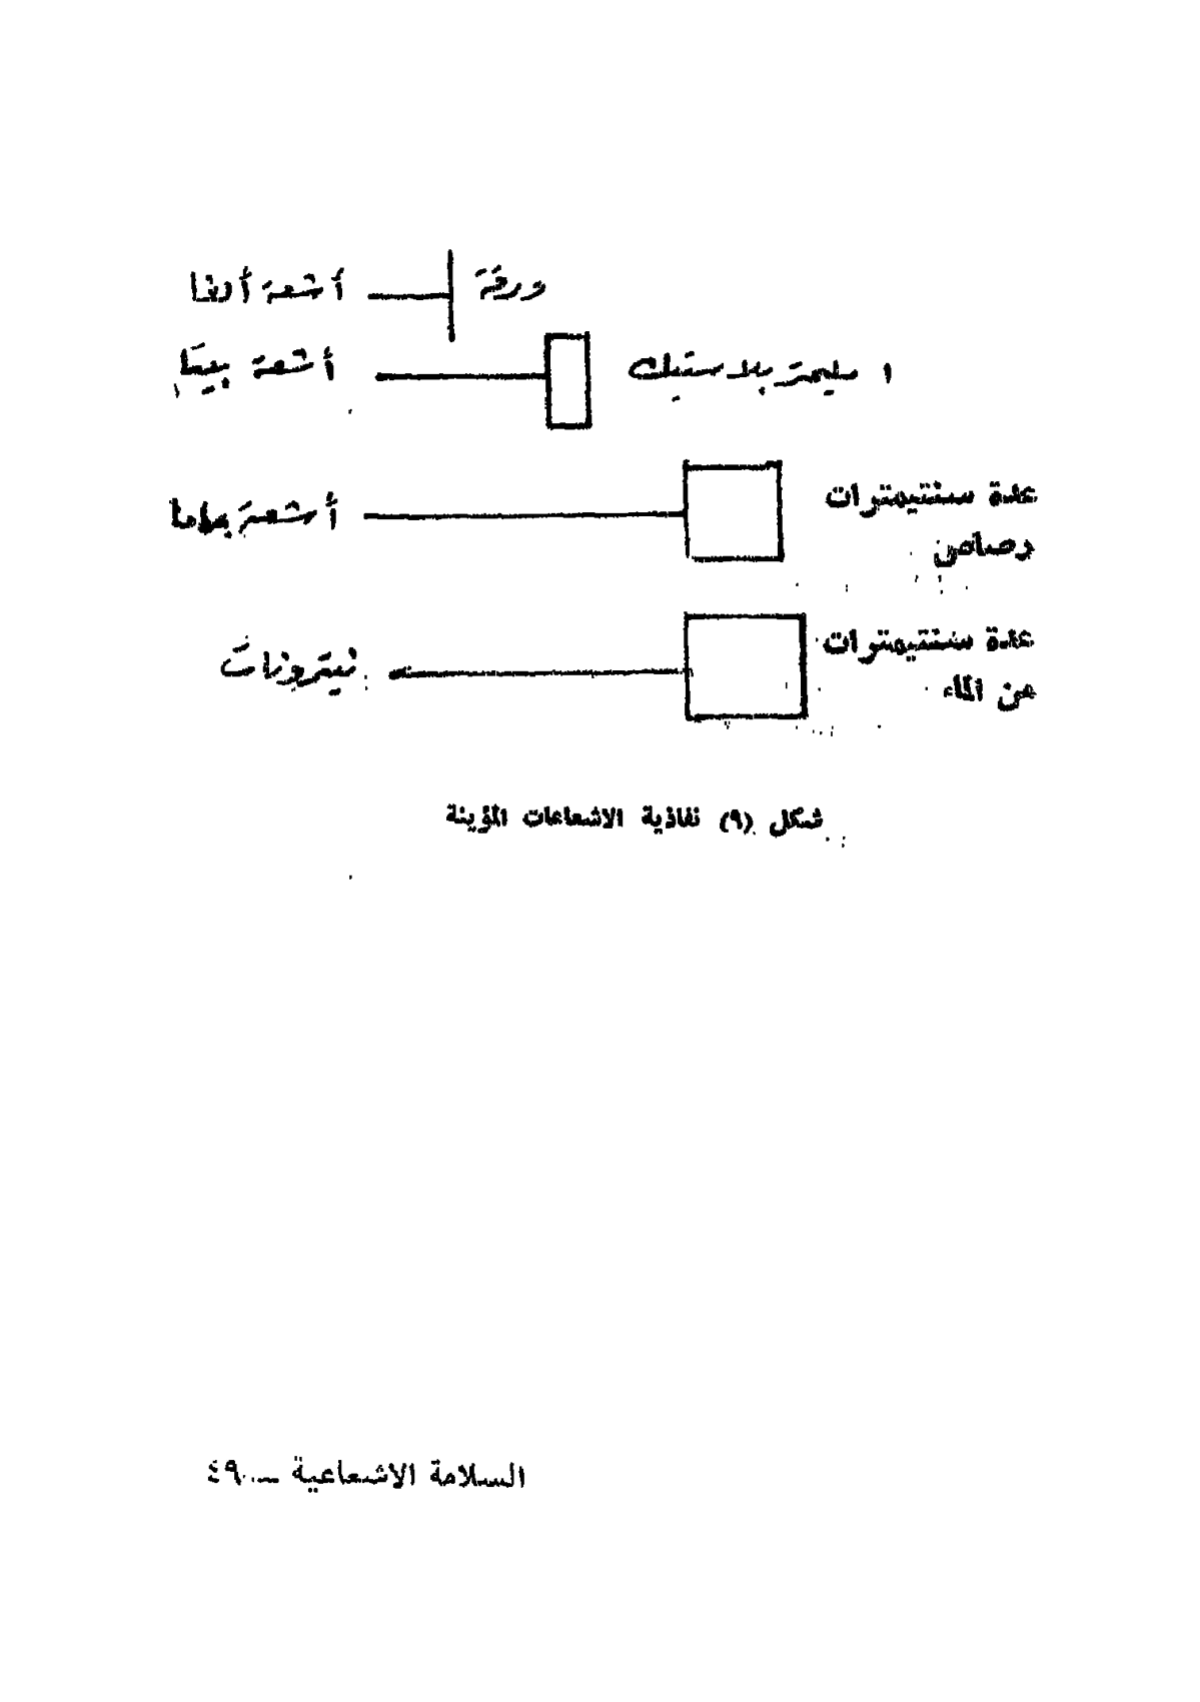 ورقة أشعة ألفا
١ مليمتر بلاستيك أشعة بيتا
عدة سنتيمترات
رصاص
أشعة جاما
عدة سنتيمترات
من الماء
نيترونات
شكل (٩) نفاذية الاشعاعات المؤينة
السلامة الاشعاعية ــ ٤٩